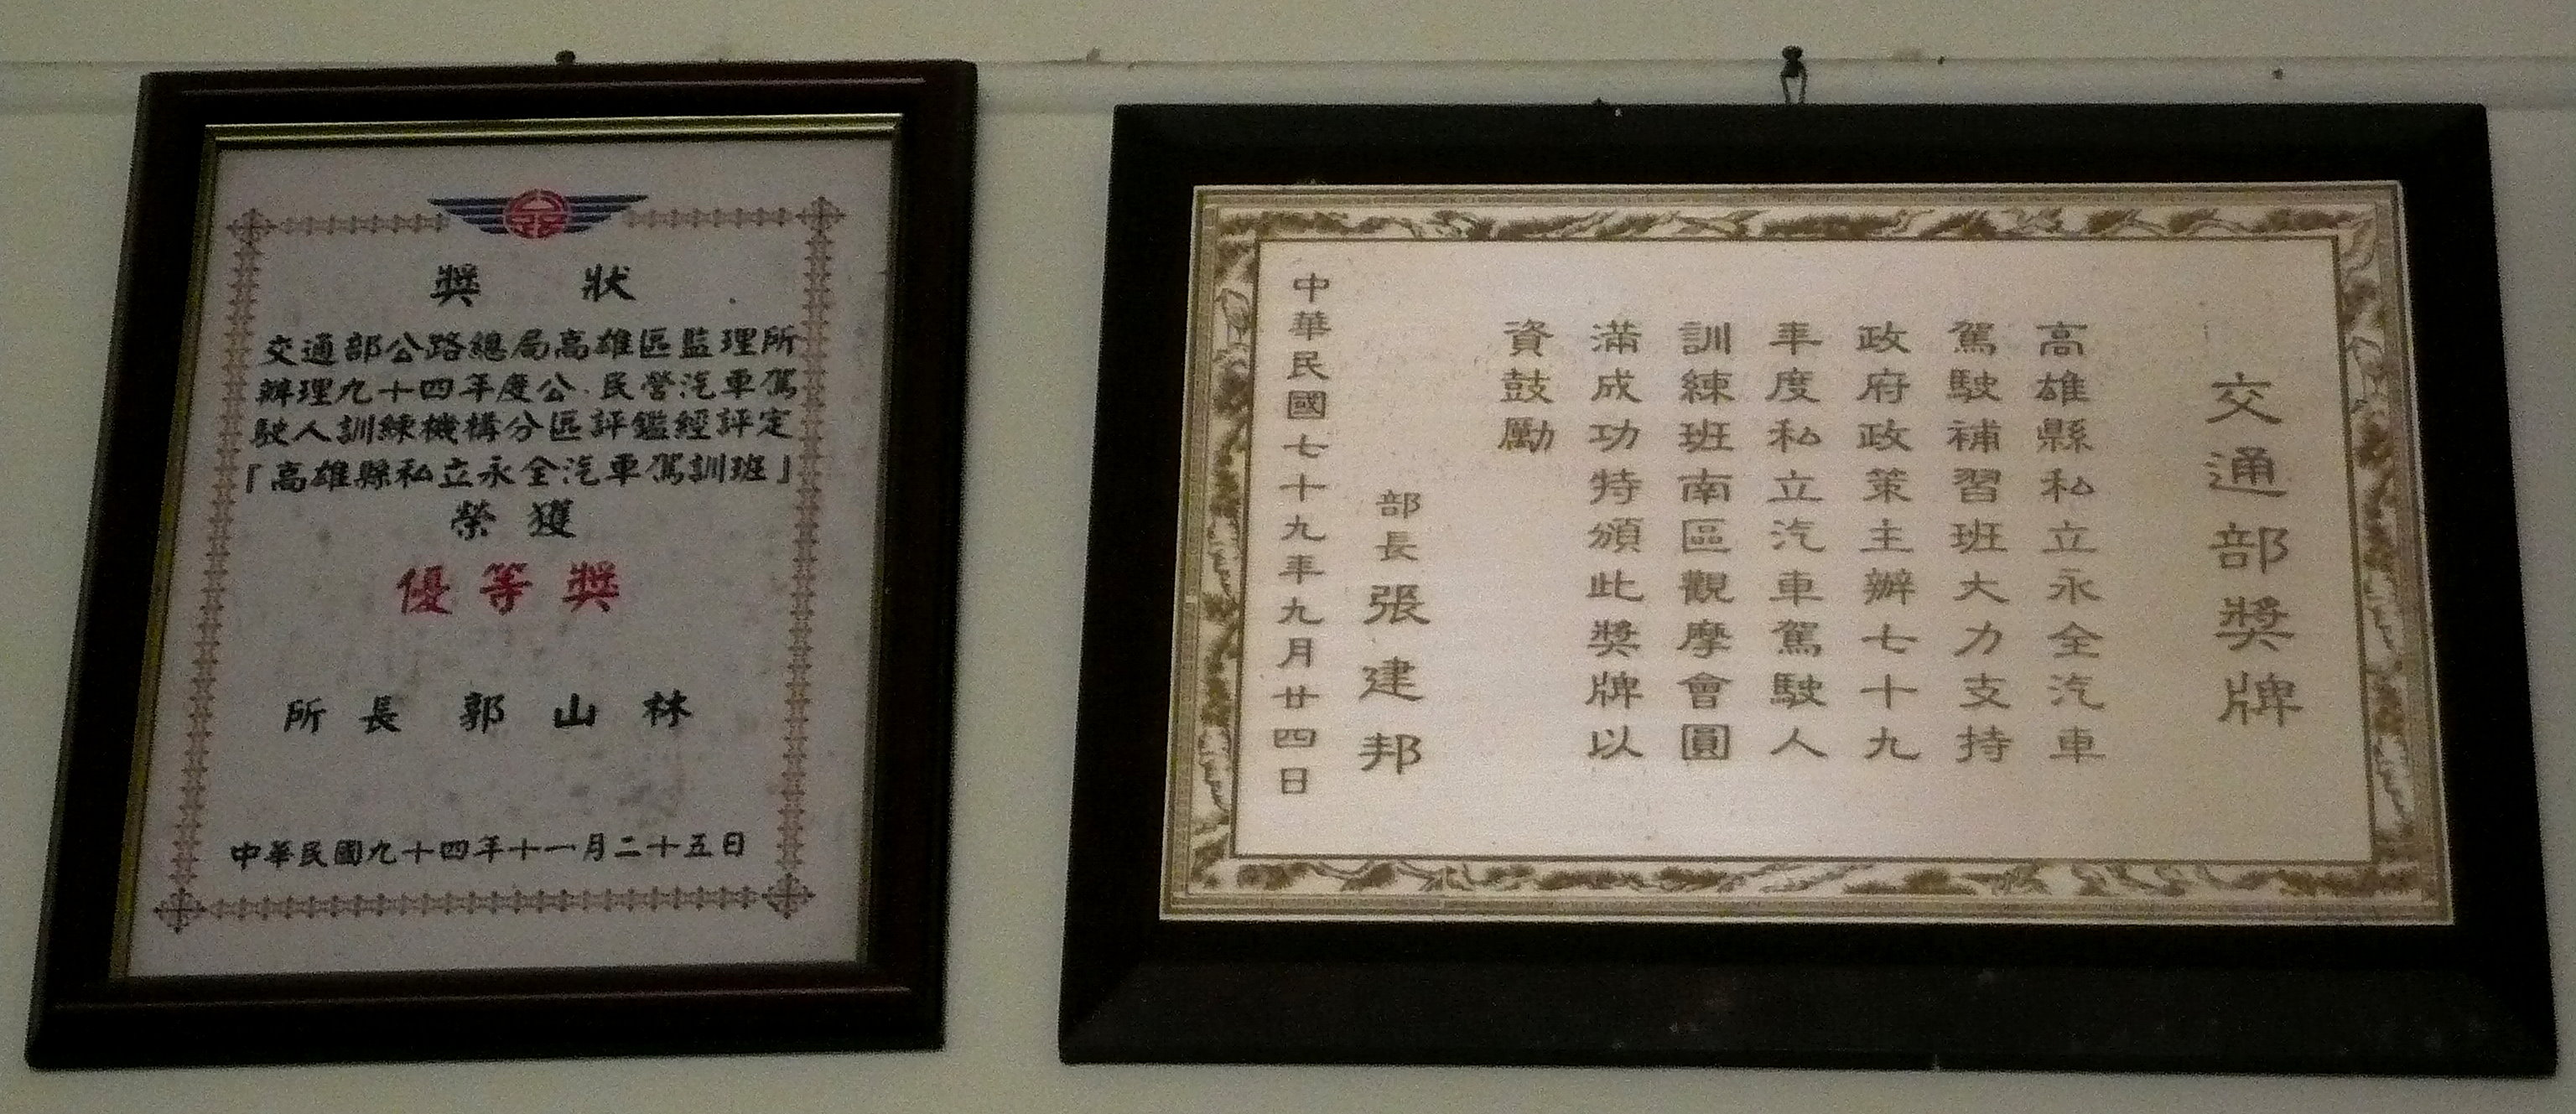 獎 狀
交通部公路總局高雄區監理所
辦理九十四年度公.民營汽車駕
駛人訓練機構分區評鑑經評定
「高雄縣私立永全汽車駕訓班」
榮獲
優等獎
所長 郭山林
中華民國九十四年十一月二十五日
交通部獎牌
高雄縣私立永全汽車
駕駛補習班大力支持
政府政策主辦七十九
年度私立汽車駕駛人
訓練班南區觀摩會圓
滿成功特頒此獎牌以
資鼓勵
部長 張建邦
中華民國七十九年九月廿四日